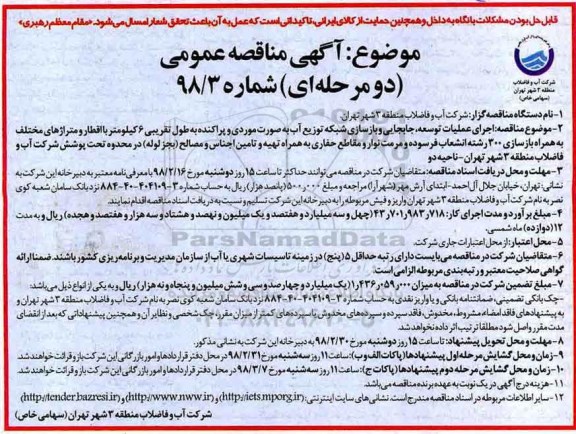 قابل حل بودن مشکلات با نگاه به داخل و همچنین حمایت از کالای ایرانی، تاکیداتی است که عمل به آن باعث تحقق شعار امسال می‌شود. «مقام معظم رهبری»
موضوع: آگهی مناقصه عمومی
(دو مرحله‌ای) شماره ۹۸/۳
شرکت آب و فاضلاب
منطقه ۳ شهر تهران
(سهامی خاص)
۱- نام دستگاه مناقصه گزار: شرکت آب و فاضلاب منطقه ۳ شهر تهران
۲- موضوع مناقصه: اجرای عملیات توسعه، جابجایی و بازسازی شبکه توزیع آب به صورت موردی و پراکنده به طول تقریبی ۶ کیلومتر با اقطار و متراژهای مختلف
به همراه بازسازی ۳۰۰ رشته انشعاب فرسوده و مرمت نوار و مقاطع حفاری به همراه تهیه و تامین اجناس و مصالح (بجز لوله) در محدوده تحت پوشش شرکت آب و
فاضلاب منطقه ۳ شهر تهران - ناحیه دو
۳- مهلت و محل دریافت اسناد مناقصه: متقاضیان شرکت در مناقصه می‌توانند حداکثر تا ساعت ۱۵ روز دوشنبه مورخ ۹۸/۲/۱۶ با معرفی نامه معتبر به دبیرخانه این شرکت به
نشانی: تهران، خیابان جلال آل احمد - ابتدای آرش مهر (شهرآرا) مراجعه و مبلغ ۵۰۰٫۰۰۰ (پانصد هزار) ریال به حساب شماره ۳-۴۰۴۱۰۹-۴۰-۸۸۴ نزد بانک سامان شعبه کوی
نصر به نام شرکت آب و فاضلاب منطقه ۳ شهر تهران واریز و فیش مربوطه را به دبیرخانه این شرکت تسلیم و نسبت به دریافت اسناد مناقصه اقدام نمایند.
۴- مبلغ برآورد و مدت اجرای کار: ۴۳٫۷۰۱٫۹۸۳٫۷۱۸ (چهل و سه میلیارد و هفتصد و یک میلیون و نهصد و هشتاد و سه هزار و هفتصد و هجده) ریال و به مدت
۱۲ (دوازده) ماه شمسی.
۵- محل اعتبار: از محل اعتبارات جاری شرکت.
۶- متقاضیان شرکت در مناقصه می‌بایست دارای رتبه حداقل ۵ (پنج) در زمینه تاسیسات شهری یا آب از سازمان مدیریت و برنامه‌ریزی کشور باشند. ضمنا ارائه
گواهی صلاحیت معتبر و رتبه‌بندی مربوطه الزامی است.
۷- مبلغ تضمین شرکت در مناقصه به میزان ۱٫۴۳۶٫۰۵۹٫۰۰۰ (یک میلیارد و چهارصد و سی و شش میلیون و پنجاه و نه هزار) ریال و به یکی از انواع ذیل می‌باشد:
- چک بانکی تضمینی، ضمانتنامه بانکی و یا واریز نقدی به حساب شماره ۳-۴۰۴۱۰۹-۴۰-۸۸۴ نزد بانک سامان شعبه کوی نصر به نام شرکت آب و فاضلاب منطقه ۳ شهر تهران و
به پیشنهادهای فاقد امضاء، مشروط، مخدوش، فاقد سپرده و سپرده‌های مخدوش یا سپرده‌های کمتر از میزان مقرر، چک شخصی و نظایر آن و همچنین پیشنهاداتی که بعد از انقضای
مدت مقرر واصل شود مطلقا ترتیب اثر داده نخواهد شد.
۸- مهلت و محل تحویل پیشنهاد: تا ساعت ۱۵ روز دوشنبه مورخ ۹۸/۲/۳۰ به دبیرخانه این شرکت به نشانی مذکور.
۹- زمان و محل گشایش مرحله اول پیشنهادها (پاکات الف و ب): ساعت ۱۱ روز سه‌شنبه مورخ ۹۸/۲/۳۱ در محل دفتر قراردادها و امور بازرگانی این شرکت باز و قرائت خواهند شد.
۱۰- زمان و محل گشایش مرحله دوم پیشنهادها (پاکات ج): ساعت ۱۱ روز سه‌شنبه مورخ ۹۸/۳/۷ در محل دفتر قراردادها و امور بازرگانی این شرکت باز و قرائت خواهند شد.
۱۱- هزینه درج آگهی در یک نوبت به عهده برنده مناقصه می‌باشد.
۱۲- سایر اطلاعات مربوطه در اسناد مناقصه مندرج است. نشانی‌های سایت اینترنتی: (http://iets.mporg.ir) و (http://www.nww.ir) و (http://tender.bazresi.ir)
شرکت آب و فاضلاب منطقه ۳ شهر تهران (سهامی خاص)
ParsNamadData